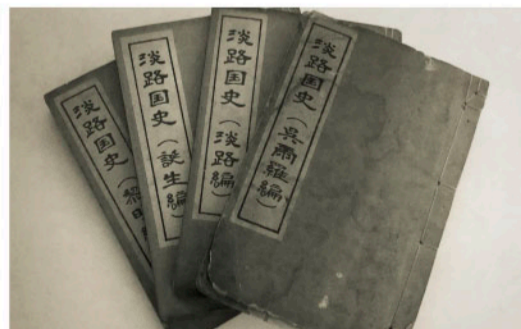 淡路国史（
淡路国史（誕生編）
淡路国史（淡路編）
淡路国史（呉爾羅編）